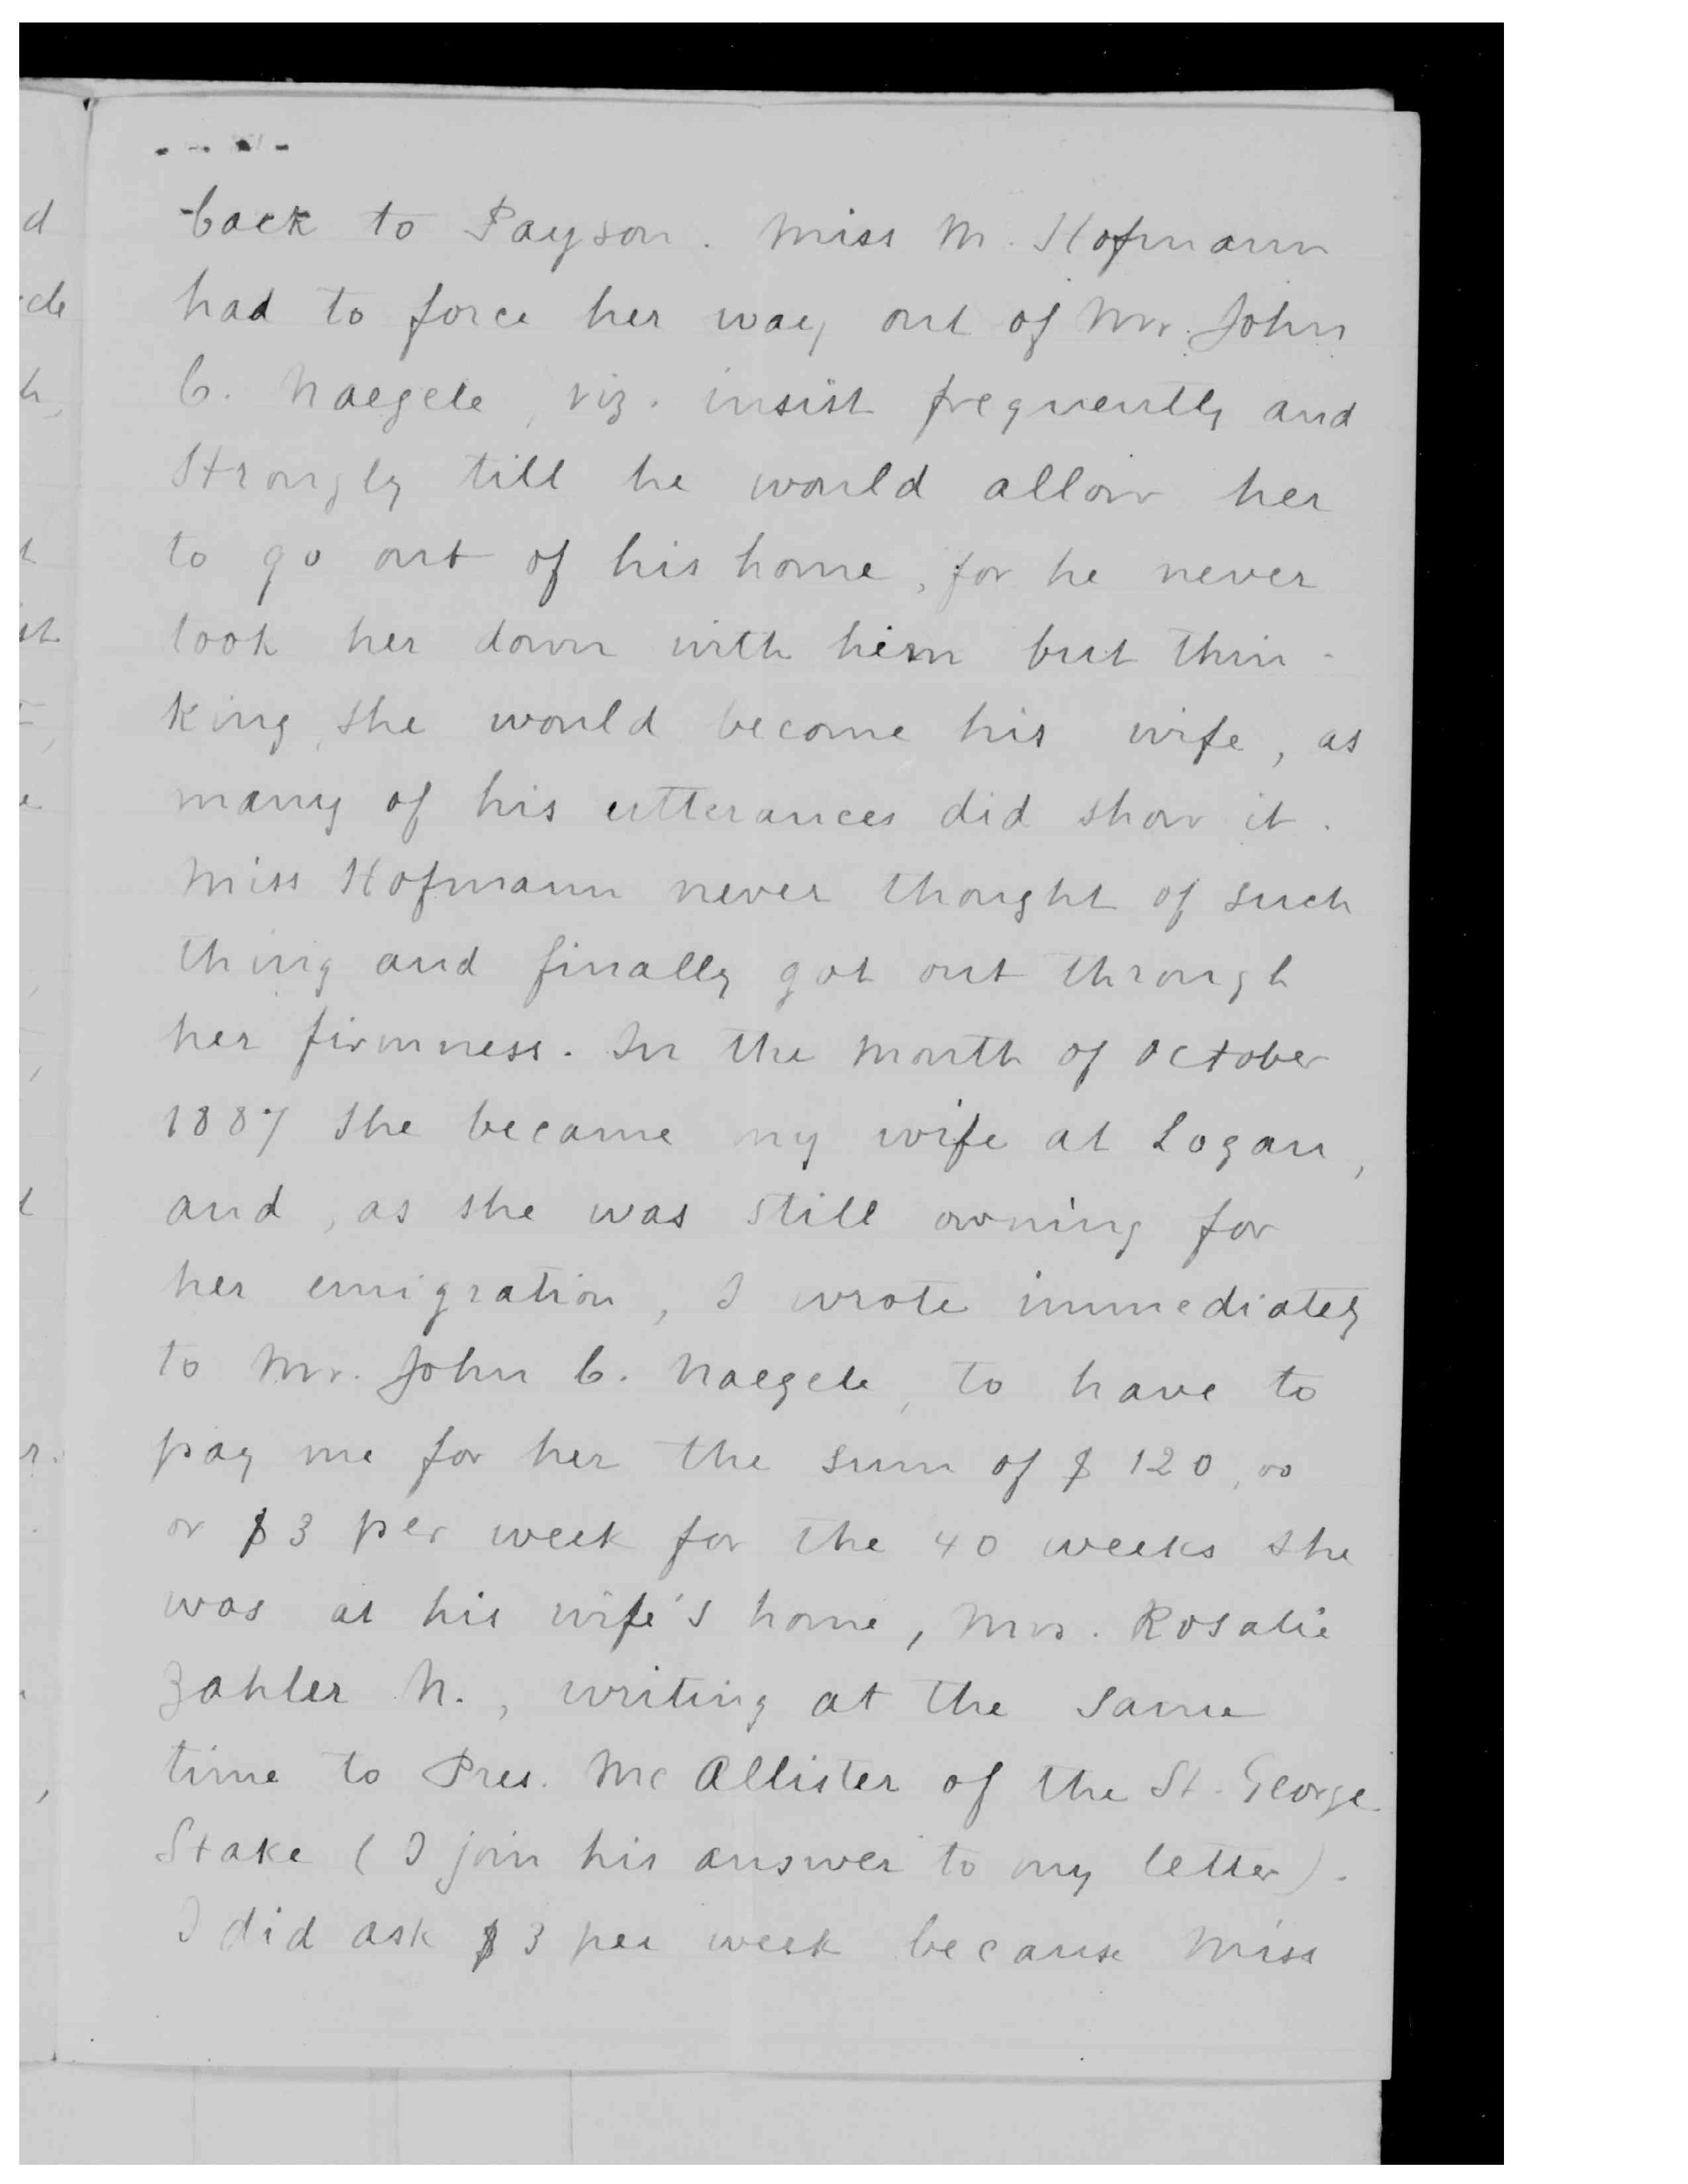 back to Payson. Miss M. Hofmann
had to force her way out of Mr. John
C. Naegele, viz. insist frequently and
strongly till he would allow her
to go out of his home, for he never
took her down with him but thin-
king, she would become his wife, as
many of his utterances did show it.
Miss Hofmann never thought of such
thing and finally got out through
her firmness. In the month of October
1887 she became my wife at Logan,
and, as she was still owning for
her emigration, I wrote immediately
to Mr. John C. Naegele, to have to
pay me for her the sum of $120,00
or $3 per week for the 40 weeks she
was at his wife's home, Mrs. Rosalie
Zahler N., writing at the same
time to Pres. McAllister of the St. George
Stake (I join his answer to my letter).
I did ask $3 per week because Miss